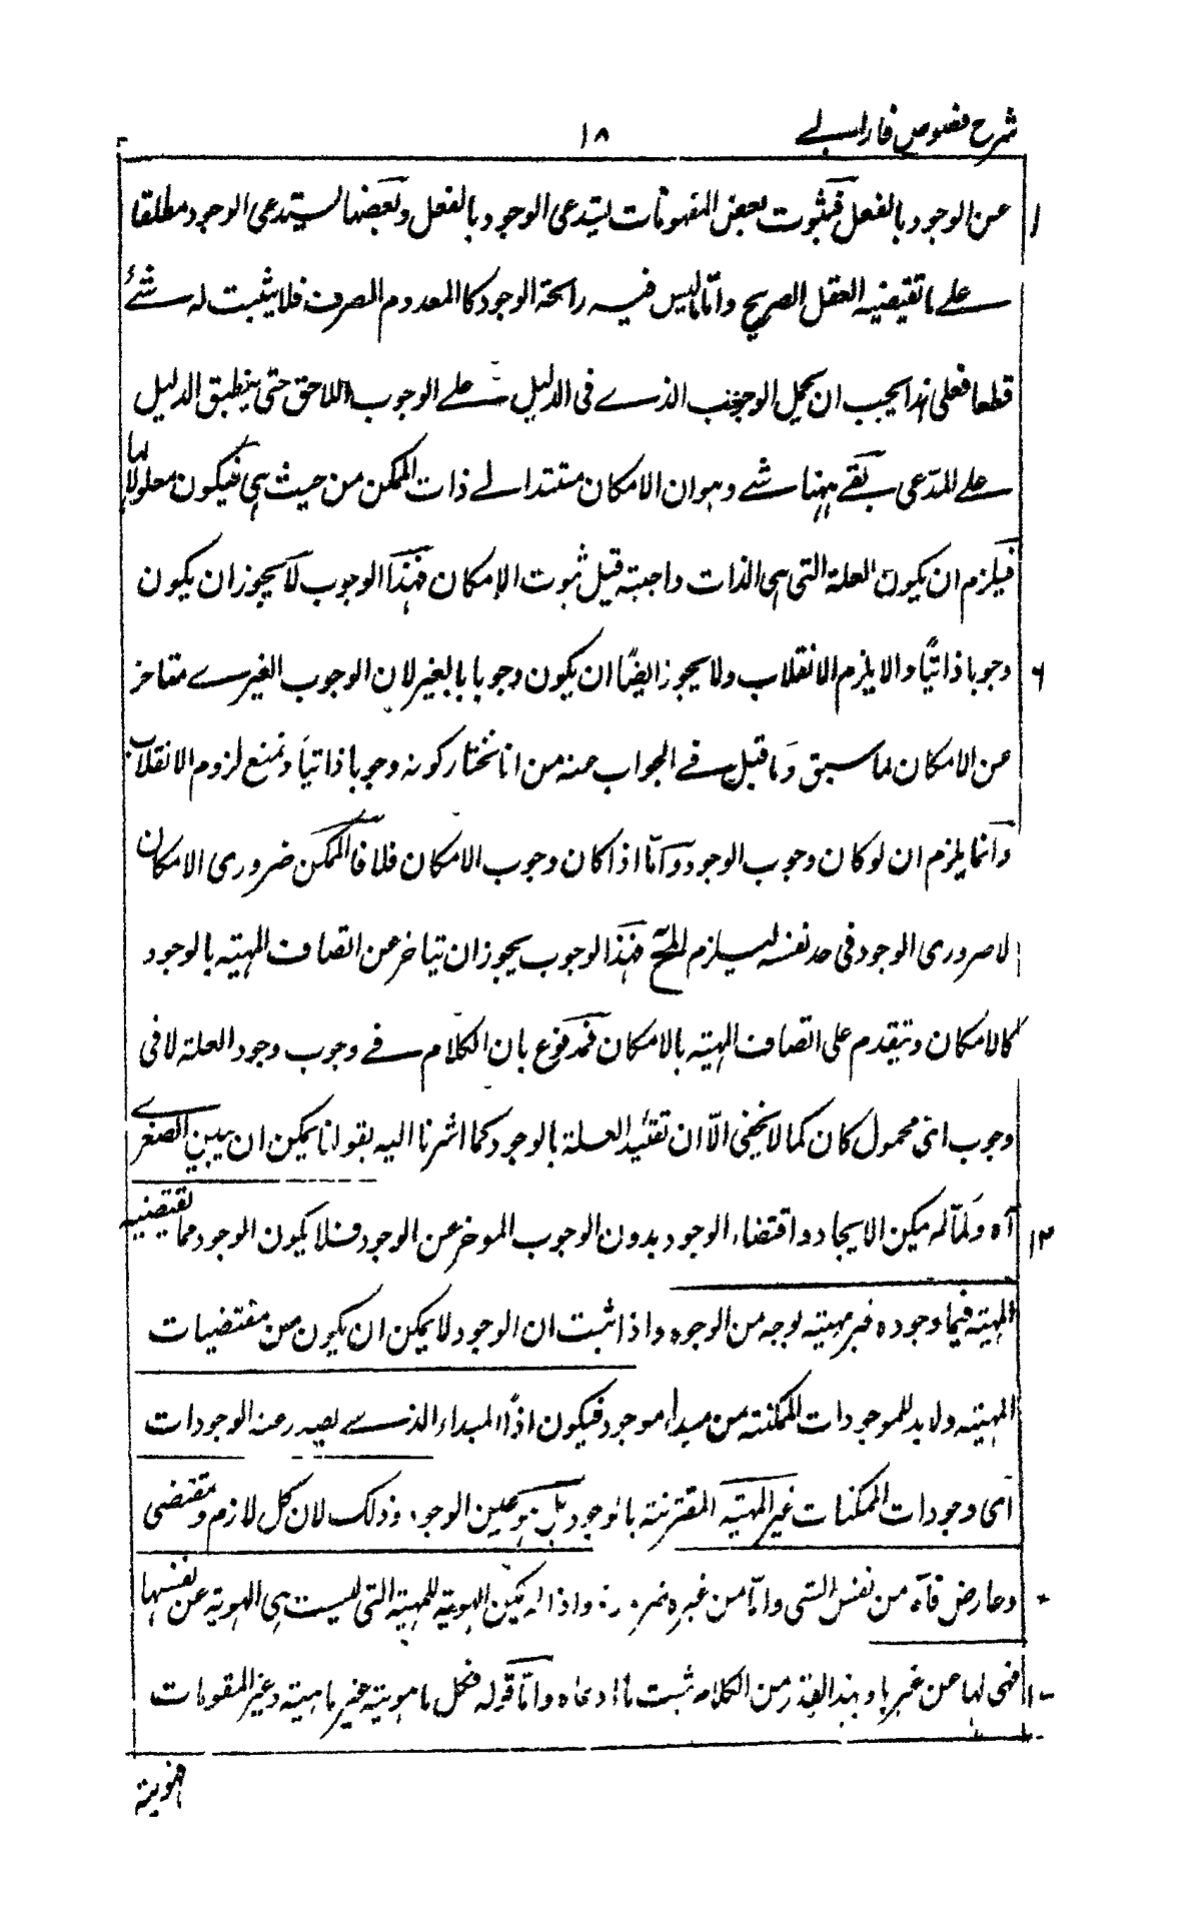 شرح فصوص فارابي
١٨
عن الوجود بالفعل فثبوت بعض المفهومات يستدعى الوجود بالفعل وبعضها يستدعى الوجود مطلقا
١
على ما تقتضيه العقل الصريح واما ما ليس فيه رائحة الوجود كالمعدوم الصرف فلا يثبت له شئ
قطعا فعلى هذا يجب ان يحمل الوجوب الذى فى الدليل على الوجوب اللاحق حتى ينطبق الدليل
على المدعى بقى ههنا شے وهو ان الامكان مستند الى ذات الممكن من حيث هى فيكون معلولا لها
فيلزم ان يكون العلة التى هى الذات واجبة قبل ثبوت الامكان فهذا الوجوب لا يجوز ان يكون
وجوبا ذاتيًا والا يلزم الانقلاب ولا يجوز ايضًا ان يكون وجوبا بالغير لان الوجوب الغيرى متاخر
٦
عن الامكان لما سبق وما قيل فى الجواب عنه من انا نختار كونه وجوبا ذاتيا ونمنع لزوم الانقلاب
وانما يلزم ان لو كان وجوب الوجود واما اذا كان وجوب الامكان فلا فالممكن ضرورى الامكان
لا ضرورى الوجود فى حد نفسه ليلزم المح فهذا الوجوب يجوز ان يتاخر عن اتصاف المهية بالوجود
كالامكان ويتقدم على اتصاف المهية بالامكان فمدفوع بان الكلام فى وجوب وجود العلة لا فى
وجوب اى محمول كان كما لا يخفى الا ان تقئيد العلة بالوجود كما اشرنا اليه بقولنا يمكن ان يبين الصغرى
آه ولما لم يكن الايجاد واقتضاء الوجود بدون الوجوب الموخر عن الوجود فلا يكون الوجود مما يقتضيه
١٢
المهية فيما وجوده غير مهيته بوجه من الوجوه واذا ثبت ان الوجود لا يمكن ان يكون من مقتضيات
المهية ولا بد للموجودات الممكنة من مبداء موجود فيكون اذًا المبداء الذى يصدر عنه الوجودات
اى وجودات الممكنات غير المهية المقترنة بالوجود بل هو عين الوجود وذلك لان كل لازم ومقتضى
وعارض فانه من نفس الشى واما من غيره ضرورة واذا لم يكن الهوية للمهية التى ليست هى الهوية عن نفسها
فهى لها عن غيرها وبهذا القدر من الكلام ثبت ما ادعاه واما قوله فكل ما هويته غير ماهيته وغير المقومات
فهويته